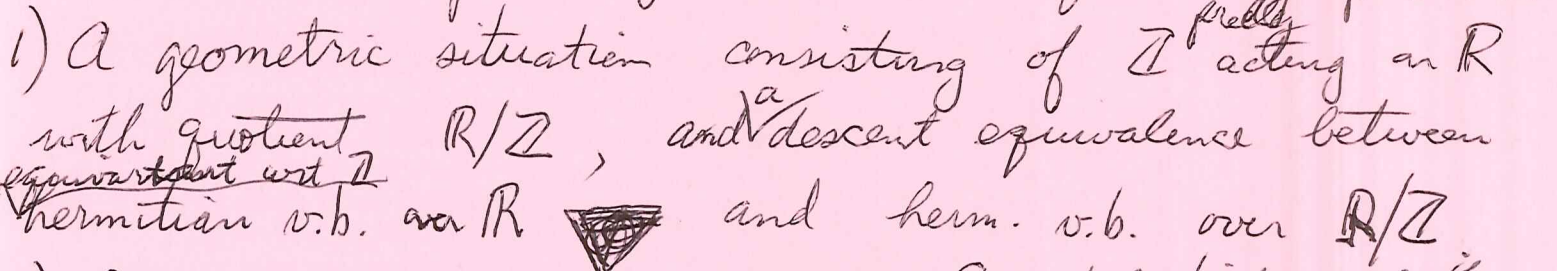 1) A geometric situation consisting of ℤ freely acting on ℝ
with quotient ℝ/ℤ, and a descent equivalence between
equivariant wrt ℤ
hermitian v.b. over ℝ and herm. v.b. over ℝ/ℤ.